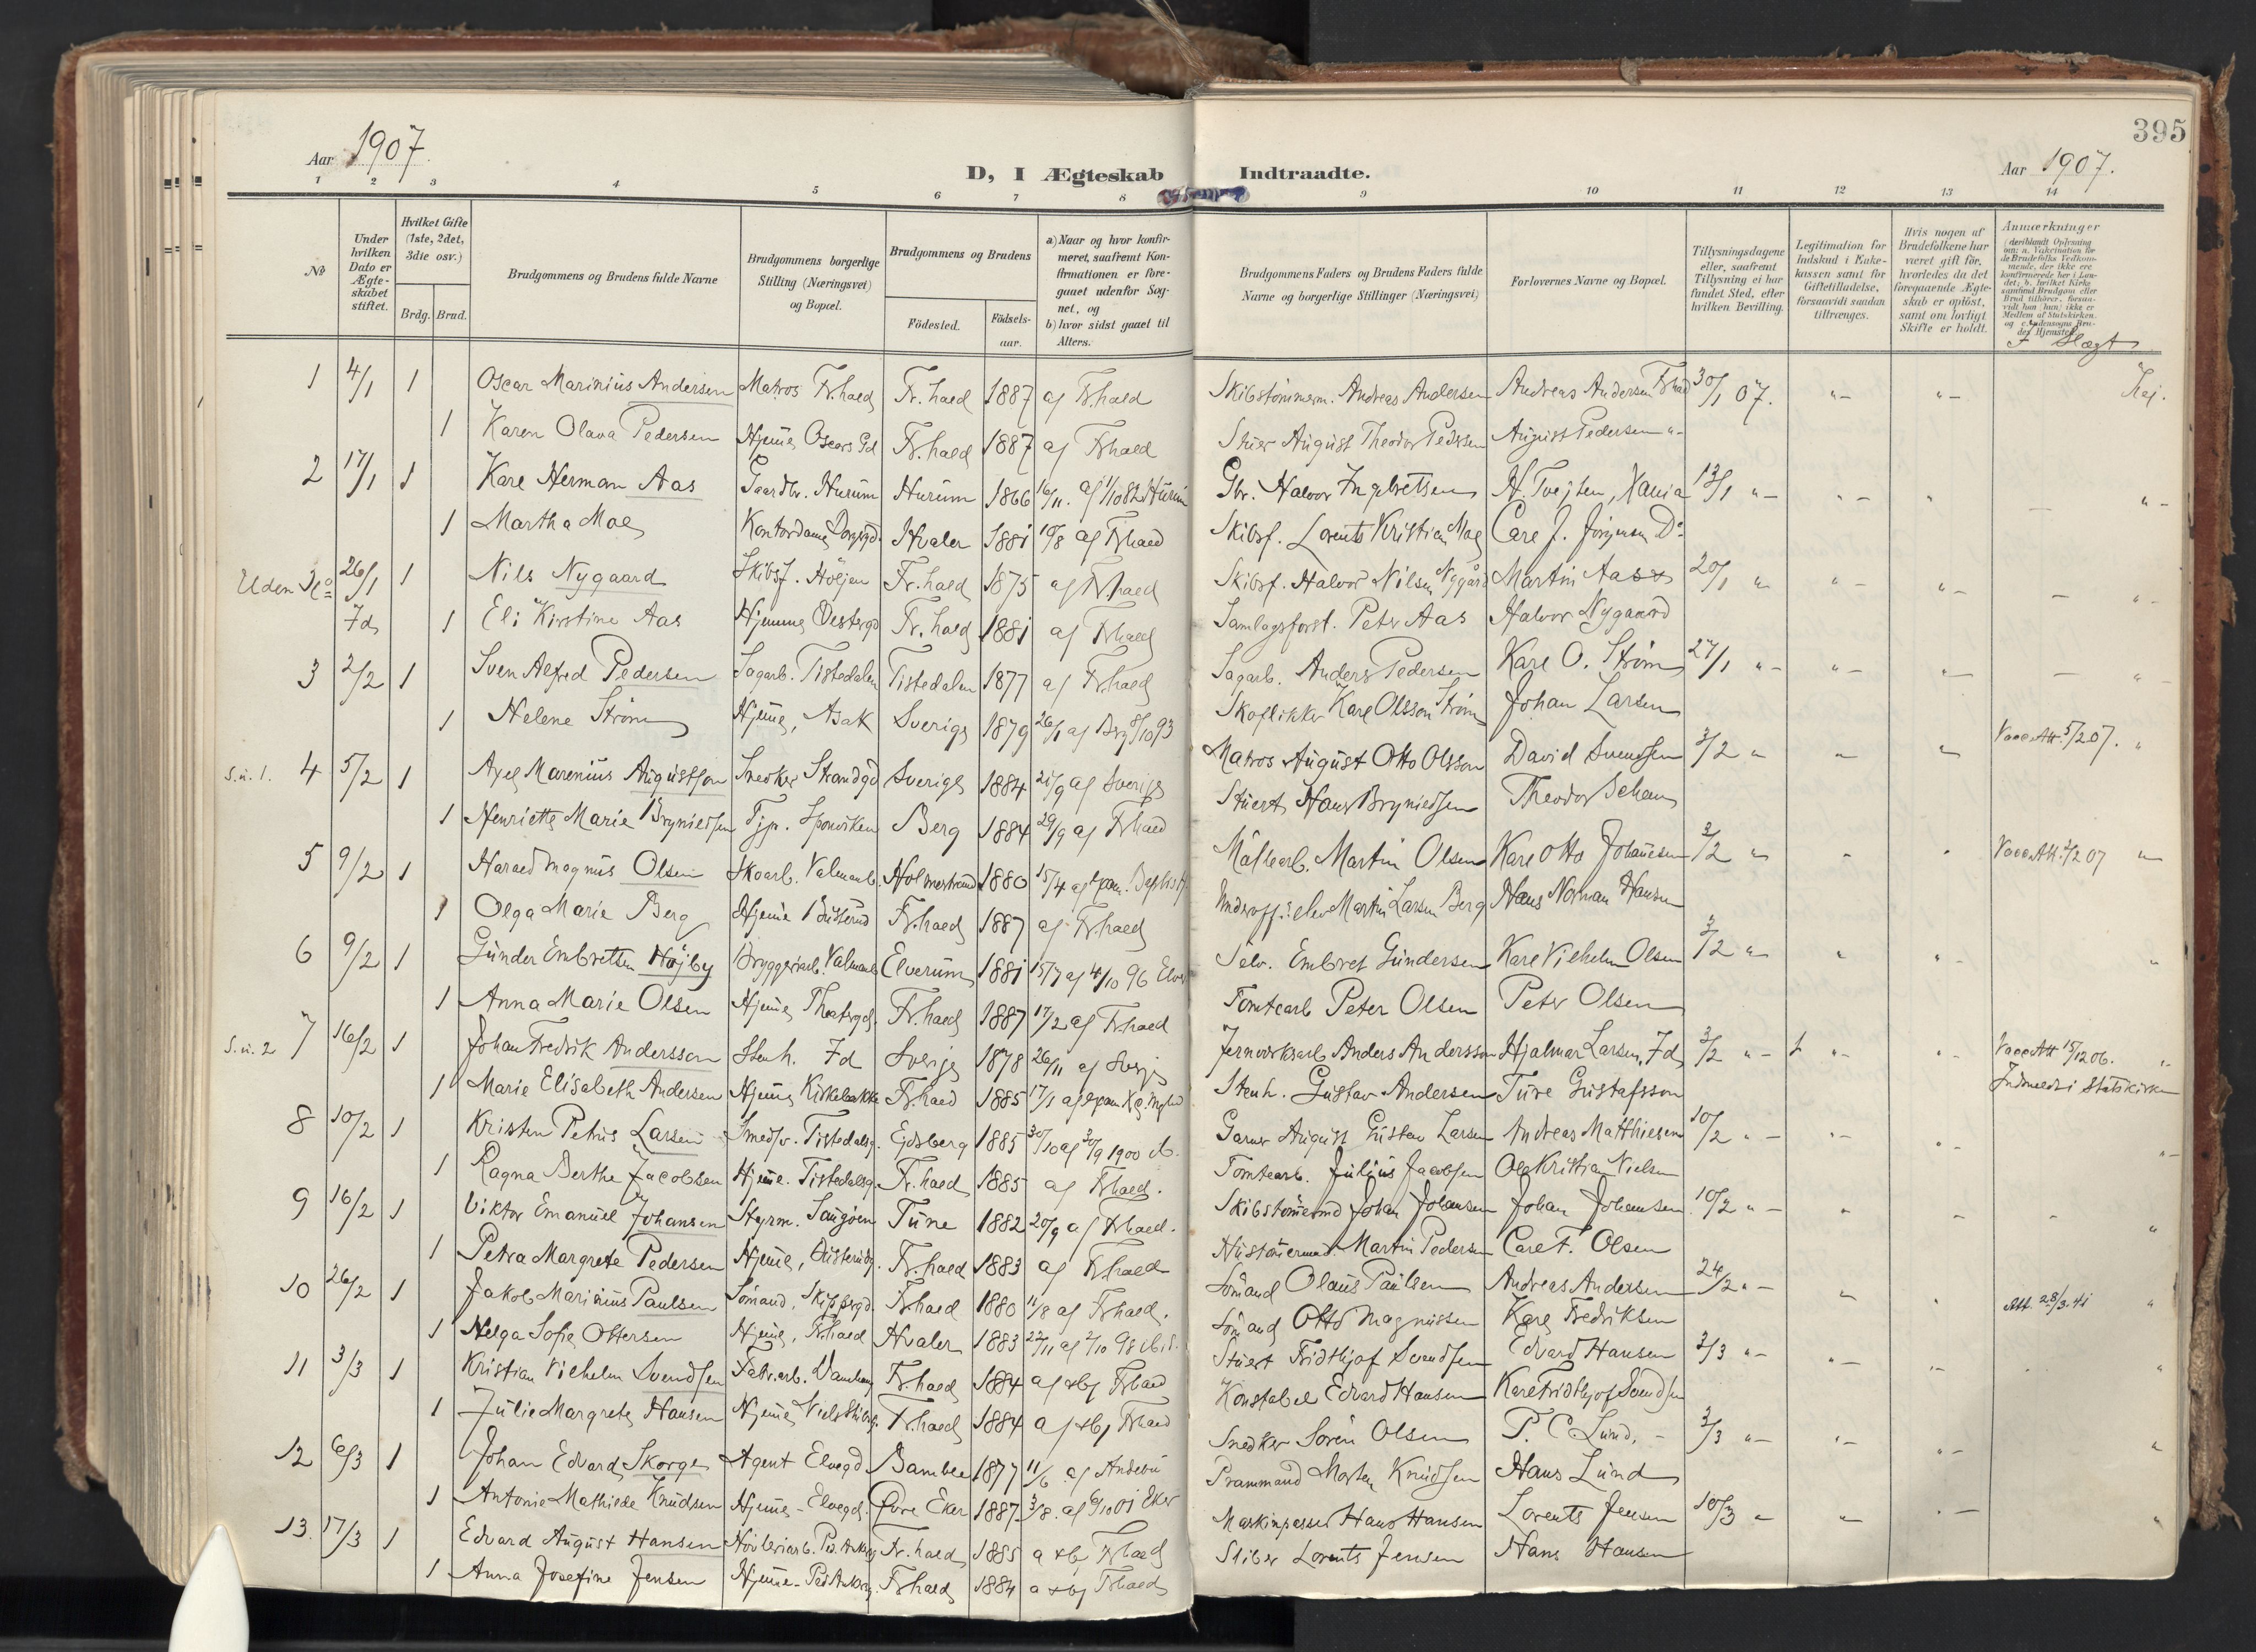 395
Aar 1907.
Aar 1907.
D, I Ægteskab Indtraadte.
1 2 3 4 5 6 7 8 9 10 11 12 13 14
No
Under hvilken Dato er Ægte-skabet stiftet.
Hvilket Gifte (1ste, 2det, 3die osv.)
Brdg. Brud.
Brudgommens og Brudens fulde Navne
Brudgommens borgerlige Stilling (Næringsvei) og Bopæl.
Brudgommens og Brudens
Fødested.
Fødsels-aar.
a) Naar og hvor konfir-meret, saafremt Kon-firmationen er fore-gaaet udenfor Sog-net, og
b) hvor sidst gaaet til Alters.
Brudgommens Faders og Brudens Faders fulde Navne og borgerlige Stillinger (Næringsvei)
Forlovernes Navne og Bopæl.
Tillysningsdagene eller, saafremt Tillysning ei har fundet Sted, efter hvilken Bevilling.
Legitimation for Indskud i Enke-kassen samt for Giftetilladelse, forsaavidt saadan tiltrænges.
Hvis nogen af Brudefolkene har været gift før, hvorledes da det foregaaende Ægte-skab er opløst, samt om lovligt Skifte er holdt.
Anmærkninger
Slægt
1 4/1 1 Oscar Marinius Andersen Matros Fr.hald Fr. hald 1887 af Fr.hald Skibstømmerm. Andreas Andersen Andreas Andersen Frhald 30/1 07. "- "-
1 Karen Olava Pedersen Hjemme Oscars Gd Fr. hald 1887 af Frhald August Theodor Pedersen August Pedersen "-
2 17/1 1 Karl Herman Aas Gaardbr. Hurum Hurum 1866 16/11. af 1/10 82 Hurum Gbr. Halvor Ingebretsen H. Tvejten, Xania 13/1 "-
1 Martha Moe Kontordame Hvaler 1881 10/8 af Frhald Skibsf. Lorents Kristian Moe Carl J. Jörgensen Do
Uden No 26/1 1 Nils Nygaard Skibsf. Fr. hald 1875 af Fr.hald Skibsf. Halvor Nilsen Nygård Martin Aas 20/1 "
Fd. 1 Eli Kirstine Aas Hjemme Vestergd Fr. hald 1881 af Frhald Samlagsforst. Peter Aas Halvor Nygaard
3 2/2 1 Sven Alfred Pedersen Sagarb. Tistedalen Tistedalen 1877 af Fr.hald Sagarb. Anders Pedersen Karl O. Strøm 27/1 "-
1 Helene Strøm Hjemme, Asak Sverige 1879 26/1 af Berg 8/10 93 Skoflikker Karl Olsson Strøm Johan Larsen
S.u. 1. 4 5/2 1 Axel Marenius Augustson Snedker Strandgd Sverige 1884 21/9 af Sverige Matros August Otto Olsson David Svendsen 3/2 " Vacc.Att. 5/2 07.
1 Henriette Marie Brynildsen Tjp. Sponviken Berg 1884 29/9 af Frhald Stuert Hans Bryniedsen Theodor
5 9/2 1 Harald Magnus Olsen Skoarb. Holmestrand 1880 15/4 af Martin Olsen Karl Otto Johansen 3/2 " Vacc.Att. 07
1 Olga Marie Berg Hjemme Fr.hald 1887 af Fr.hald Martin Larsen Berg Hans Norman Hansen
6 9/2 1 Gunder Embretsen Højby Bryggeriarb. Elverum 1881 15/7 af 4/10 96 Elver Selv. Embret Gundersen Karl Vilhelm Olsen 3/2 "
1 Anna Marie Olsen Hjemme Theatergd. Fr.hald 1887 17/2 af Frhald Tomtearb Peter Olsen Peter Olsen
S.u. 2 7 16/2 1 Johan Fredrik Andersson Stenh. Fd Sverige 1878 26/11 af Sverige Anders Andersson Hjalmar Larsen, Fd 3/2 "- Vacc.Att 15/12 06.
1 Marie Elisabeth Andersen Hjemme Kirkebakke Fr.hald 1885 17/1 Stenh. Gustav Andersen Ture Gustafsson Indmeldt i Statskirken
8 10/2 1 Kristen Petrus Larsen Smedsv. Tistedalsg. Eidsberg 1885 30/10 af 30/9 1900 Garver August Gustav Larsen Andreas Matthiesen 10/2 "-
1 Ragna Berthe Jacobsen Hjemme. Tistedalsg. Fr. hald 1885 af Frhald. Tomtearb. Julius Jacobsen Ole Kristian Nielsen
9 16/2 1 Viktor Emanuel Johansen Styrm. Tune 1882 20/9 af Frhald. Skibstømmermd Johan Johansen Johan Johansen 10/2 "-
1 Petra Margrete Pedersen Hjemme, Fr.hald 1883 af Frhald Hustømermd. Martin Pedersen Carl F. Olsen
10 26/2 1 Jakob Marinius Paulsen Sømand, Skippergd. Frhald 1880 11/8 af Frhald. Sømand Olaus Paulsen Andreas Andersen 24/2 "- Att. 28/3.41
1 Helga Sofie Ottersen Hjemme, Frhald Hvaler 1883 22/11 af 2/10 98 Sømand Otto Magnussen Karl Fredriksen
11 3/3 1 Kristian Vilhelm Svendsen Fabr.arb. Fr.hald 1884 a) & b) Frhald Stuert Fridthjof Svendsen Edvard Hansen 3/3 "-
1 Julie Margrete Hansen Hjemme Fr.hald 1884 a) & b) Frhald Konstabel Edvard Hansen Karl Fridthjof Svendsen
12 6/3 1 Johan Edvard Skorge Agent Elvegd Bamble 1877 11/6 af Andebu Snedker Søren Olsen P. C. Lund. - 3/3 "-
1 Antonie Mathilde Knudsen Hjemme - Elvegd. Øvre Eker 1887. 3/8. af 6/10 01 Eker Prammand Morten Knudsen Hans Lund
13. 17/3 1 Edvard August Hansen Høvleriarb. Ped. Ankerg Fr. hald 1885 a & b) Frhald Maskinpasser Hans Hansen Lorents Jensen 10/3 "
1 Anna Josefine Jensen Hjemme - Ped Ankerg. Frhald 1884 a & b) Frhald Sliber Lorents Jensen Hans Hansen